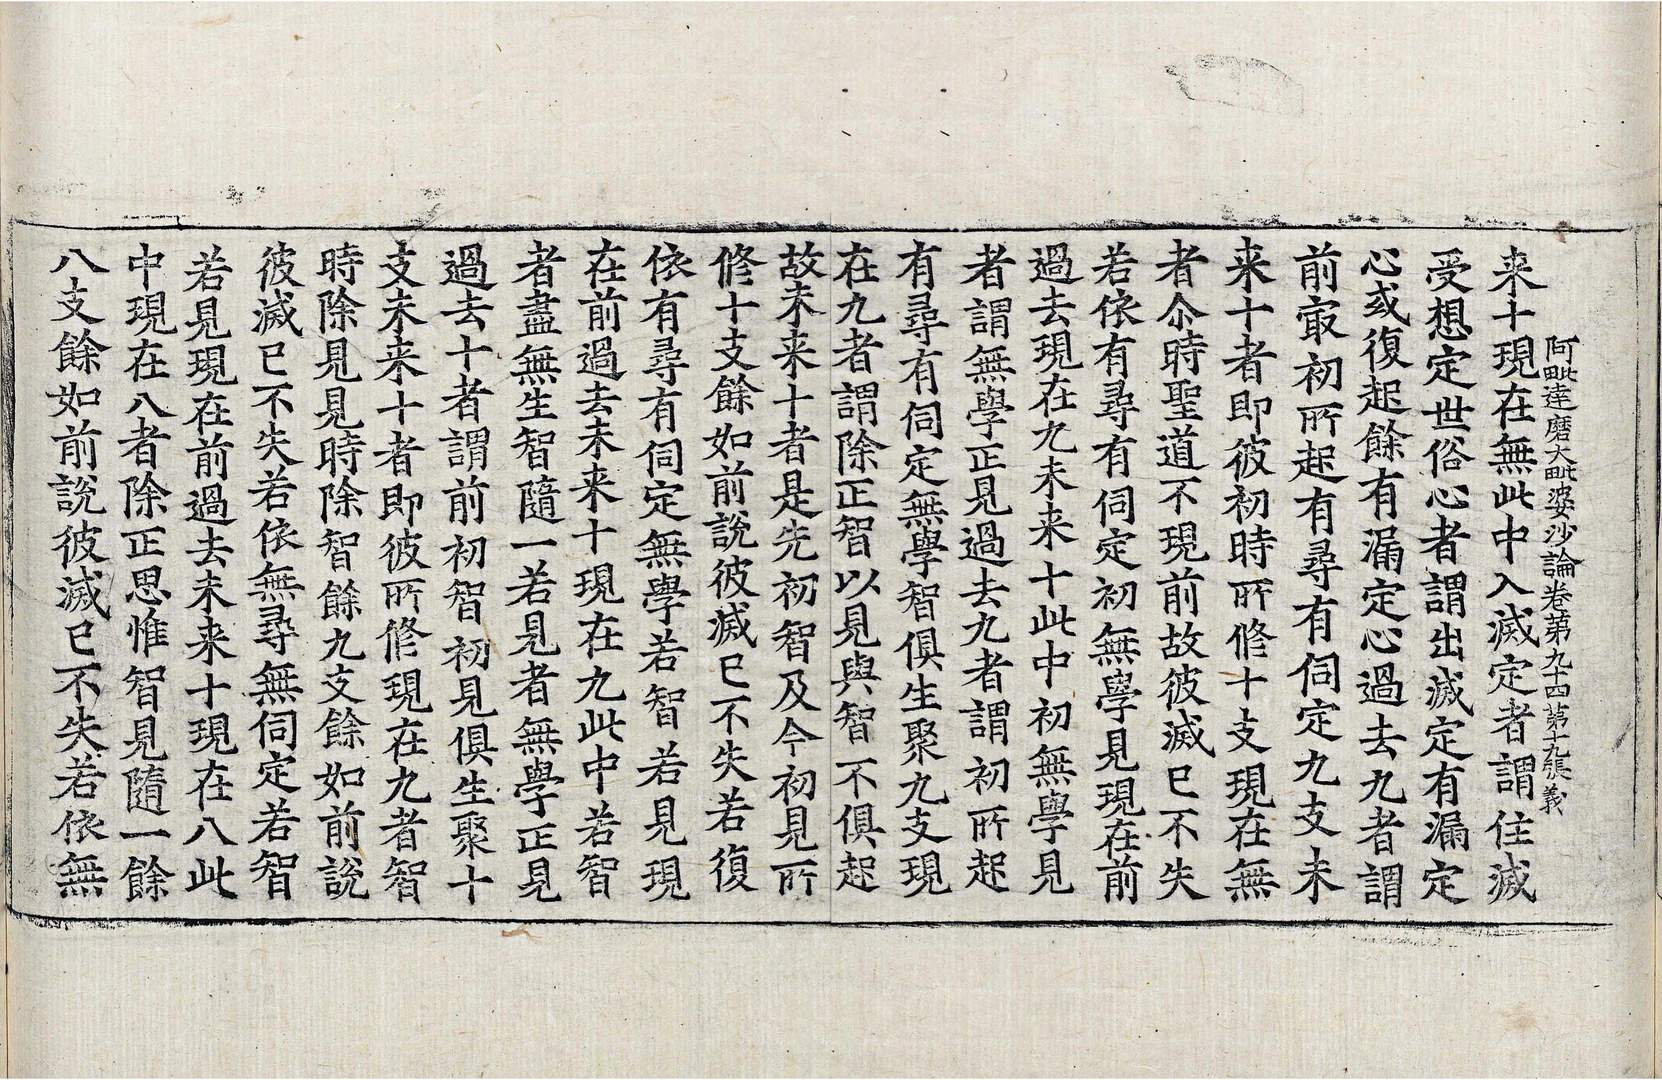 阿毗達磨大毗婆沙論卷第九十四第十九張義
来十現在無此中入滅定者謂住滅
受想定世俗心者謂出滅定有漏定
心或復起餘有漏定心過去九者謂
前㝡初所起有尋有伺定九支未
来十者即彼初時所修十支現在無
者尒時聖道不現前故彼滅已不失
若依有尋有伺定初無學見現在前
過去現在九未来十此中初無學見
者謂無學正見過去九者謂初所起
有尋有伺定無學智俱生聚九支現
在九者謂除正智以見與智不俱起
故未来十者是先初智及今初見所
修十支餘如前說彼滅已不失若復
依有尋有伺定無學若智若見現
在前過去未来十現在九此中若智
者盡無生智隨一若見者無學正見
過去十者謂前初智初見俱生聚十
支未来十者即彼所修現在九者智
時除見見時除智餘九支餘如前說
彼滅已不失若依無尋無伺定若智
若見現在前過去未来十現在八此
中現在八者除正思惟智見隨一餘
八支餘如前說彼滅已不失若依無